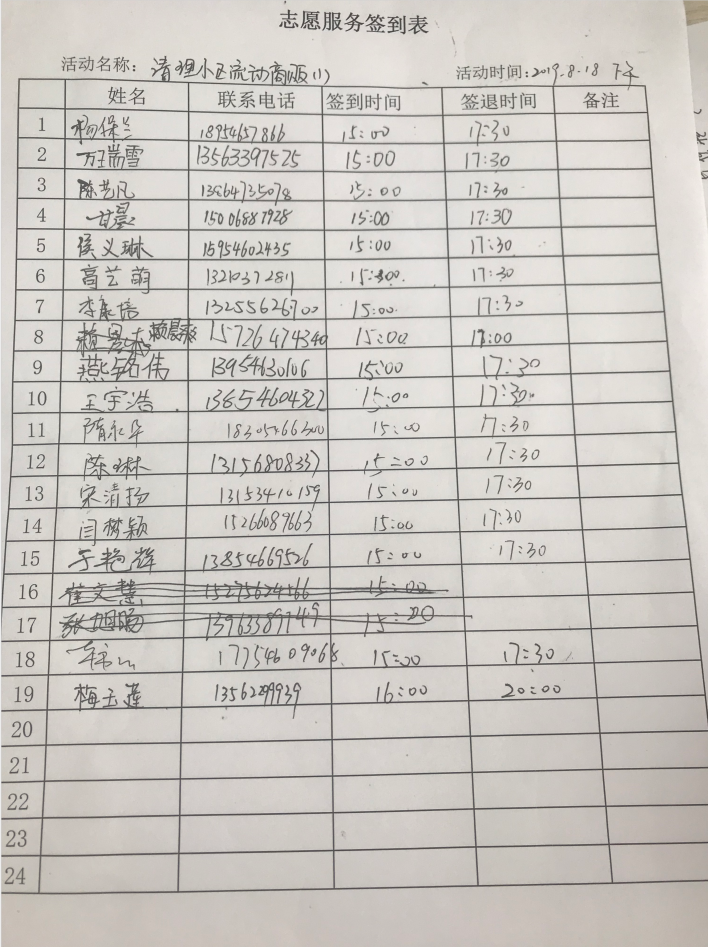 志愿服务签到表
活动名称: 清理小区流动商贩(1) 活动时间:2019.8.18 下午
姓名 联系电话 签到时间 签退时间 备注
1 杨保兰 18954657866 15:00 17:30
2 万瑞雪 13563397525 15:00 17:30
3 陈艺凡 13864735078 15:00 17:30
4 甘晨 15006887928 15:00 17:30
5 侯义琳 15954602435 15:00 17:30
6 高艺萌 13210372811 15:00 17:30
7 李康培 13255626700 15:00 17:30
8 赖晨 15726474340 15:00 17:00
9 燕铭伟 13954630106 15:00 17:30
10 王宇浩 13854604322 15:00 17:30
11 隋永华 18305466300 15:00 17:30
12 陈琳 13156808337 15:00 17:30
13 宋清扬 13153410159 15:00 17:30
14 闫树颖 15266089663 15:00 17:30
15 于艳辉 13854669526 15:00 17:30
16 崔文慧 15275624566 15:00
17 张旭腾 13963389749 15:00
18 17754609068 15:00 17:30
19 梅玉莲 13562099939 16:00 20:00
20
21
22
23
24